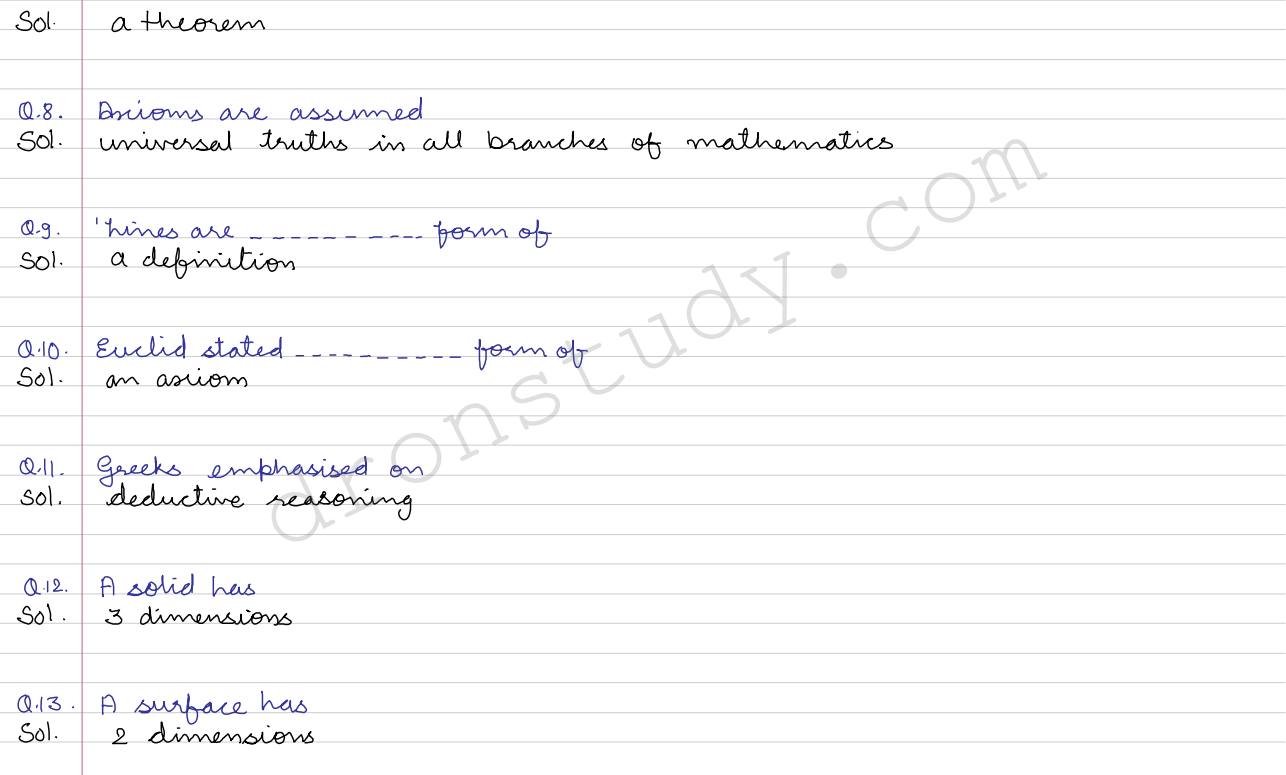 Sol. a theorem
Q.8. Axioms are assumed
Sol. universal truths in all branches of mathematics
Q.9. 'Lines are ----------- form of
Sol. a definition
Q.10. Euclid stated ----------- form of
Sol. an axiom
Q.11. Greeks emphasised on
Sol. deductive reasoning
Q.12. A solid has
Sol. 3 dimensions
Q.13. A surface has
Sol. 2 dimensions
dronstudy.com